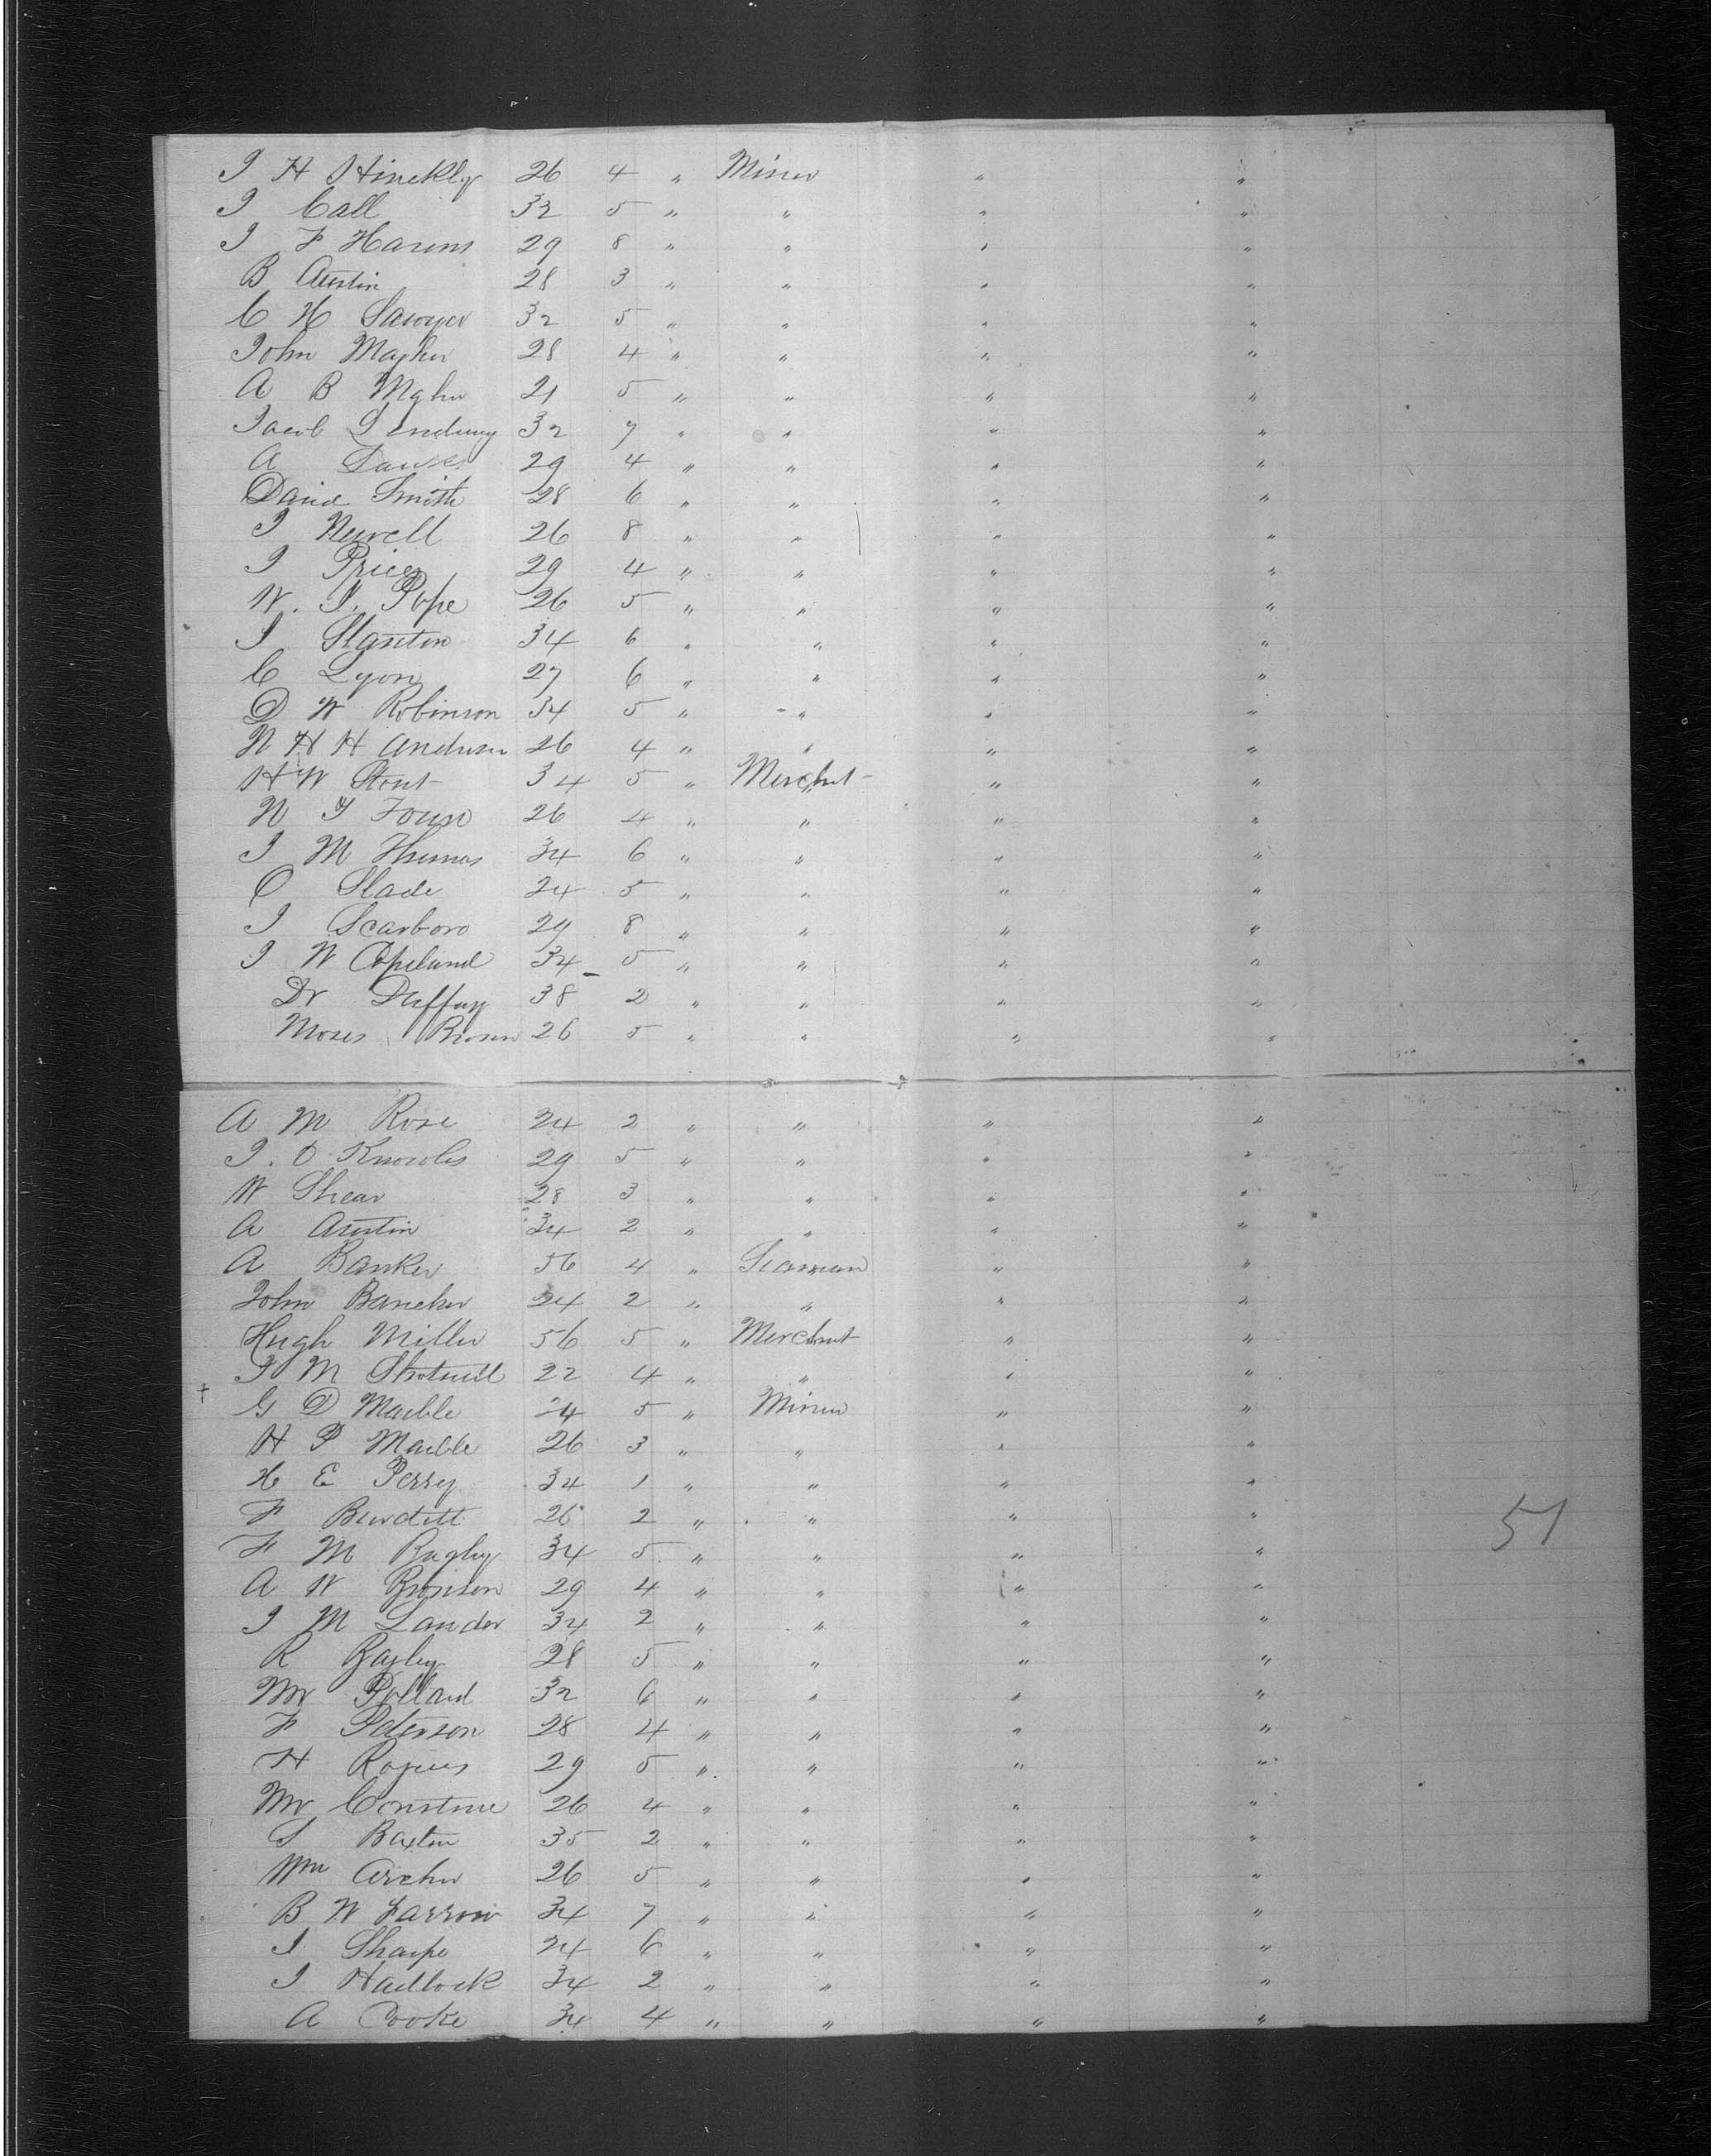 J H Hinckly 26 4 " Miner " "
J Call 32 5 " " " "
J F Harens 29 8 " " " "
B Austin 28 3 " " " "
C H Sawyer 32 5 " " " "
John Mapher 28 4 " " " "
A B Mgher 21 5 " " " "
Jacob 32 7 " " " "
A 29 4 " " " "
David Smith 28 6 " " " "
J Newell 26 8 " " " "
J Price 29 4 " " " "
W. J. Pope 26 5 " " " "
J Stanton 34 6 " " " "
C Lyon 27 6 " " " "
D W Robinson 34 5 " " " "
N H H Anderson 26 4 " " " "
H W Stout 34 5 " Merchnt " "
N Y 26 4 " " " "
J M Thomas 34 6 " " " "
C Slade 24 5 " " " "
J Scarboro 29 8 " " " "
J W Copeland 34 5 " " " "
Dr Duffay 38 2 " " " "
Moses Brown 26 5 " " " "
A M Rose 24 2 " " " "
J. O Knowles 29 5 " " " "
W Shear 28 3 " " " "
A Austin 34 2 " " " "
A Banker 56 4 " Seaman " "
John Bancker 24 2 " " " "
Hugh Miller 56 5 " Merchnt " "
J M Shotwell 22 4 " " " "
+ G D Marble 24 5 " Miner " "
H P Marble 26 3 " " " "
H E Perry 34 1 " " " "
F Burdett 26 2 " " " "
51
F M Bagley 34 5 " " " "
A W Bronson 29 4 " " " "
J M Lander 34 2 " " " "
R Bagley 28 5 " " " "
Mr Pollard 32 6 " " " "
F Peterson 28 4 " " " "
H Rogers 29 5 " " " "
Mr 26 4 " " " "
S Baxter 35 2 " " " "
Wm Archer 26 5 " " " "
B W Farrow 34 7 " " " "
J Sharpe 24 6 " " " "
J Hadlock 34 2 " " " "
A Cooke 34 4 " " " "